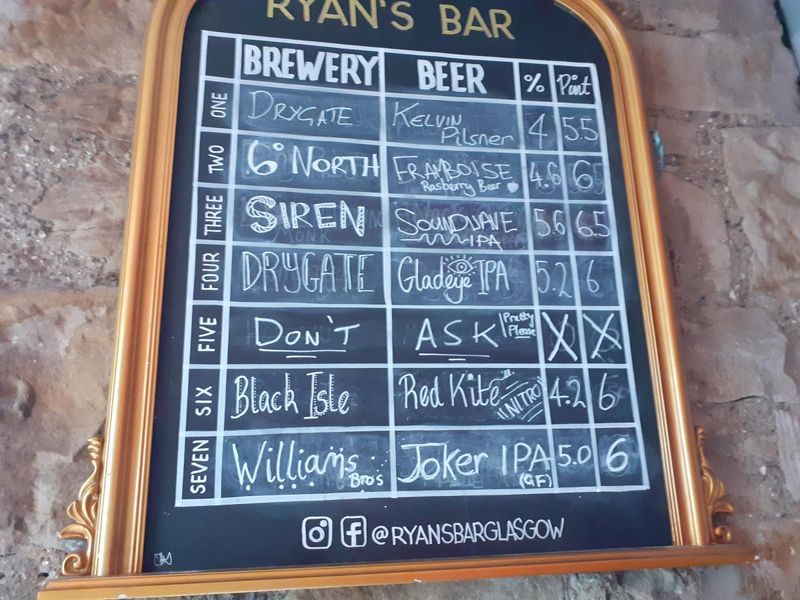 RYAN'S BAR
BREWERY BEER % Pint
ONE DRYGATE KELVIN Pilsner 4 5.5
TWO 6° NORTH FRAMBOISE Rasberry Beer 4.6 6
THREE SIREN SOUNDWAVE IPA 5.6 6.5
FOUR DRYGATE Gladeye IPA 5.2 6
FIVE DON'T ASK Pretty Please X X
SIX Black Isle Red Kite NITRO 4.2 6
SEVEN Williams Bros Joker IPA (GF) 5.0 6
@RYANSBARGLASGOW